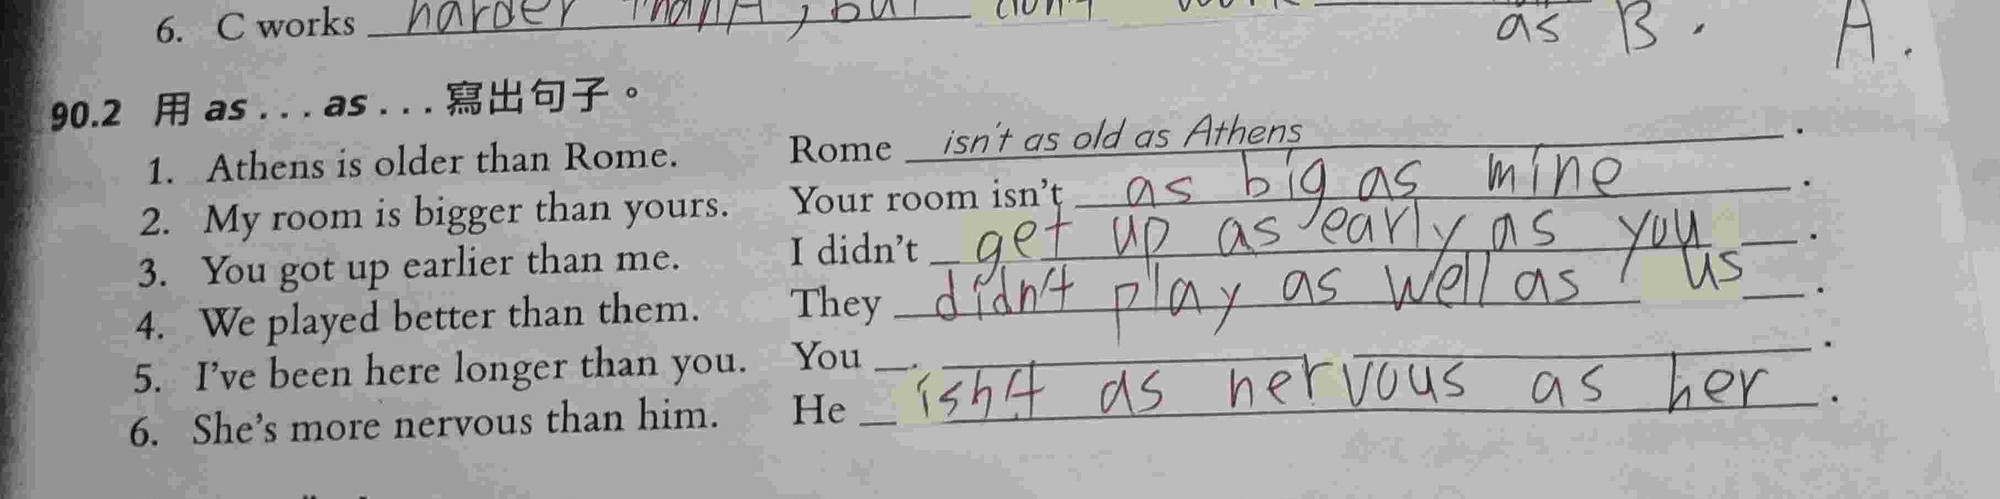 6. C works harder than A, but don't work as B. A.
90.2 用 as . . . as . . . 寫出句子。
1. Athens is older than Rome. Rome isn't as old as Athens.
2. My room is bigger than yours. Your room isn't as big as mine.
3. You got up earlier than me. I didn't get up as early as you.
4. We played better than them. They didn't play as well as us.
5. I've been here longer than you. You
6. She's more nervous than him. He isn't as nervous as her.